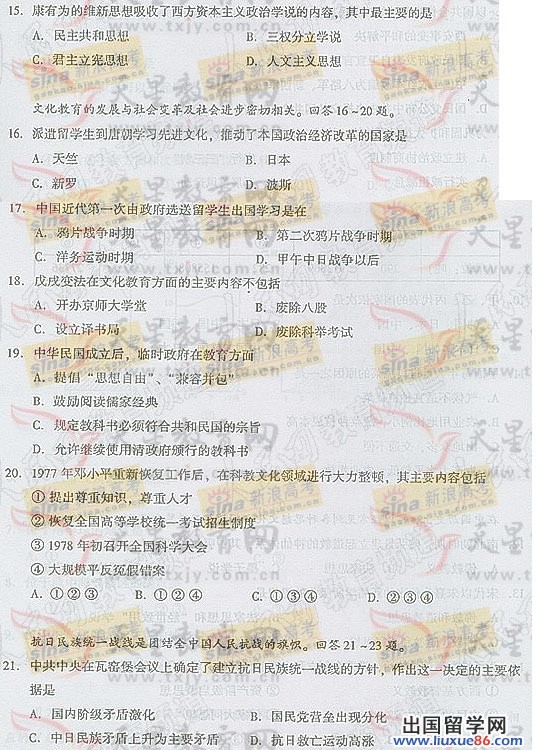 15. 康有为的维新思想吸收了西方资本主义政治学说的内容，其中最主要的是
A. 民主共和思想 B. 三权分立学说
C. 君主立宪思想 D. 人文主义思想
文化教育的发展与社会变革及社会进步密切相关。回答16～20题。
16. 派遣留学生到唐朝学习先进文化，推动了本国政治经济改革的国家是
A. 天竺 B. 日本
C. 新罗 D. 波斯
17. 中国近代第一次由政府选送留学生出国学习是在
A. 鸦片战争时期 B. 第二次鸦片战争时期
C. 洋务运动时期 D. 甲午中日战争以后
18. 戊戌变法在文化教育方面的主要内容不包括
A. 开办京师大学堂 B. 废除八股
C. 设立译书局 D. 废除科举考试
19. 中华民国成立后，临时政府在教育方面
A. 提倡“思想自由”、“兼容并包”
B. 鼓励阅读儒家经典
C. 规定教科书必须符合共和民国的宗旨
D. 允许继续使用清政府颁行的教科书
20. 1977年邓小平重新恢复工作后，在科教文化领域进行大力整顿，其主要内容包括
① 提出尊重知识，尊重人才
② 恢复全国高等学校统一考试招生制度
③ 1978年初召开全国科学大会
④ 大规模平反冤假错案
A. ①②③ B. ①②④ C. ①③④ D. ②③④
抗日民族统一战线是团结全中国人民抗战的旗帜。回答21～23题。
21. 中共中央在瓦窑堡会议上确定了建立抗日民族统一战线的方针，作出这一决定的主要依
据是
A. 国内阶级矛盾激化 B. 国民党营垒出现分化
C. 中日民族矛盾上升为主要矛盾 D. 抗日救亡运动高涨
天星教育网
www.txjy.com.cn
sina 新浪高考
出国留学网
www.liuxue86.com